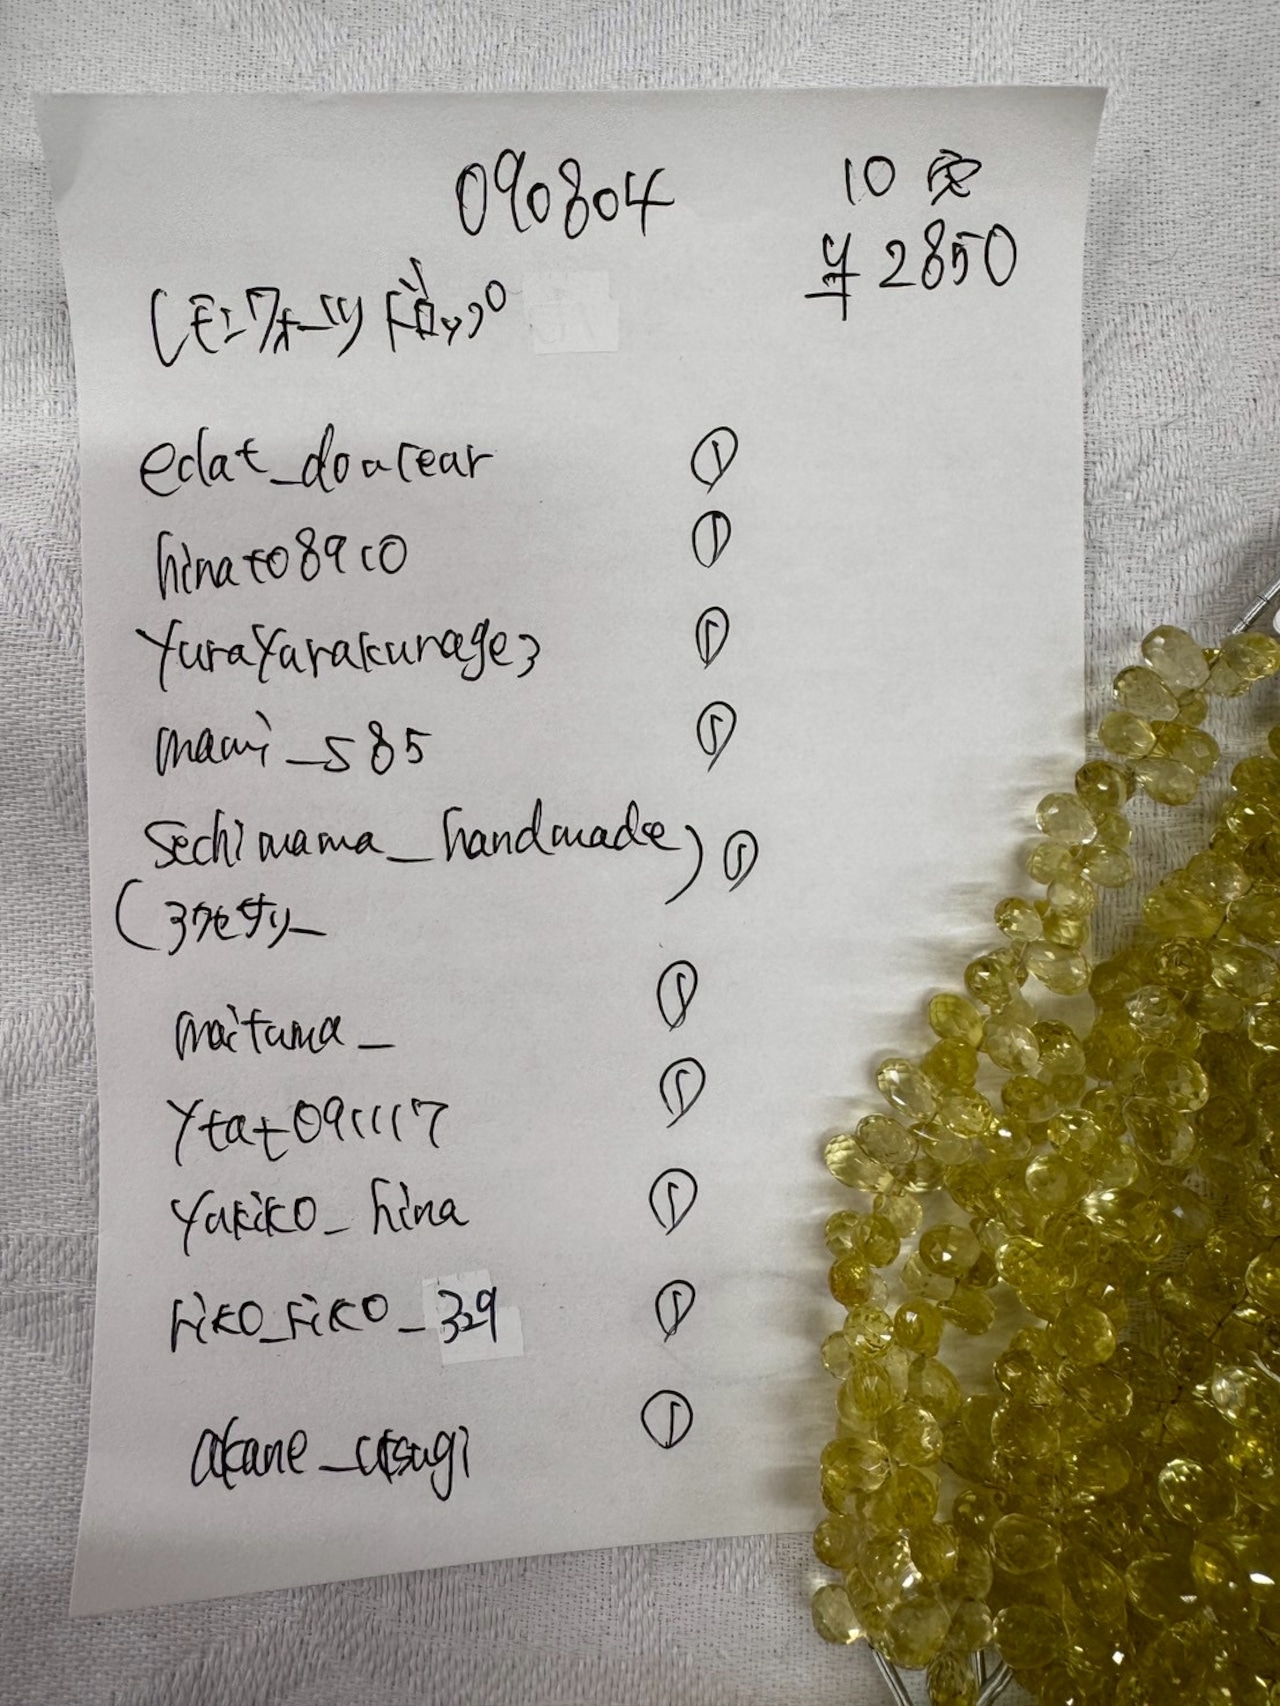 090804 10 定
¥2850
レモンクォーツドロップ
eclat_doucear ①
hinato8910 ①
yurayurakurage3 ①
mami_585 ①
sechimama_handmade) ①
(
maituma_ ①
ytat091117 ①
yukiko_hina ①
riko_riko_329 ①
akane_utsugi ①